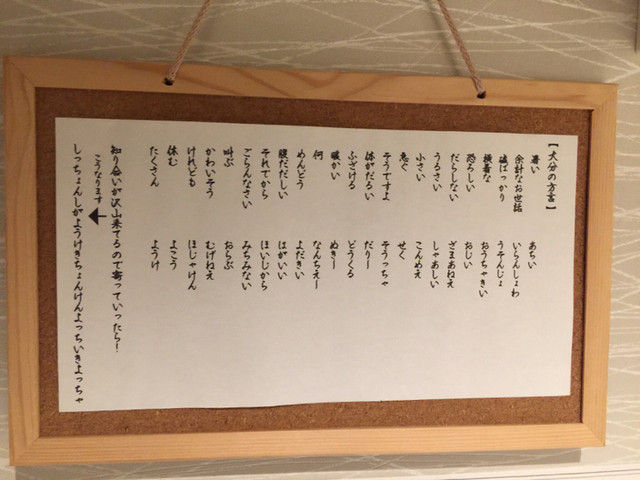 【大分の方言】
暑い　あちい
余計なお世話　いらんしょわ
嘘ばっかり　うそんじょ
横着な　おうちゃきい
恐ろしい　おじい
だらしない　ざまあねえ
うるさい　しゃあしい
小さい　こんめえ
急ぐ　せく
そうですよ　そうっちゃ
体がだるい　だりー
ふざける　どうくる
暖かい　ぬきー
何　なんちえー
めんどう　よだきい
腹だたしい　はがいい
それでから　ほいじから
ごらんなさい　みちみない
叫ぶ　おらぶ
かわいそう　むげねえ
けれども　ほじゃけん
休む　よこう
たくさん　ようけ
知り合いが沢山来てるので寄っていったら～
こうなります
しっちょんしがようけきちょんけんよっちいきよっちゃ